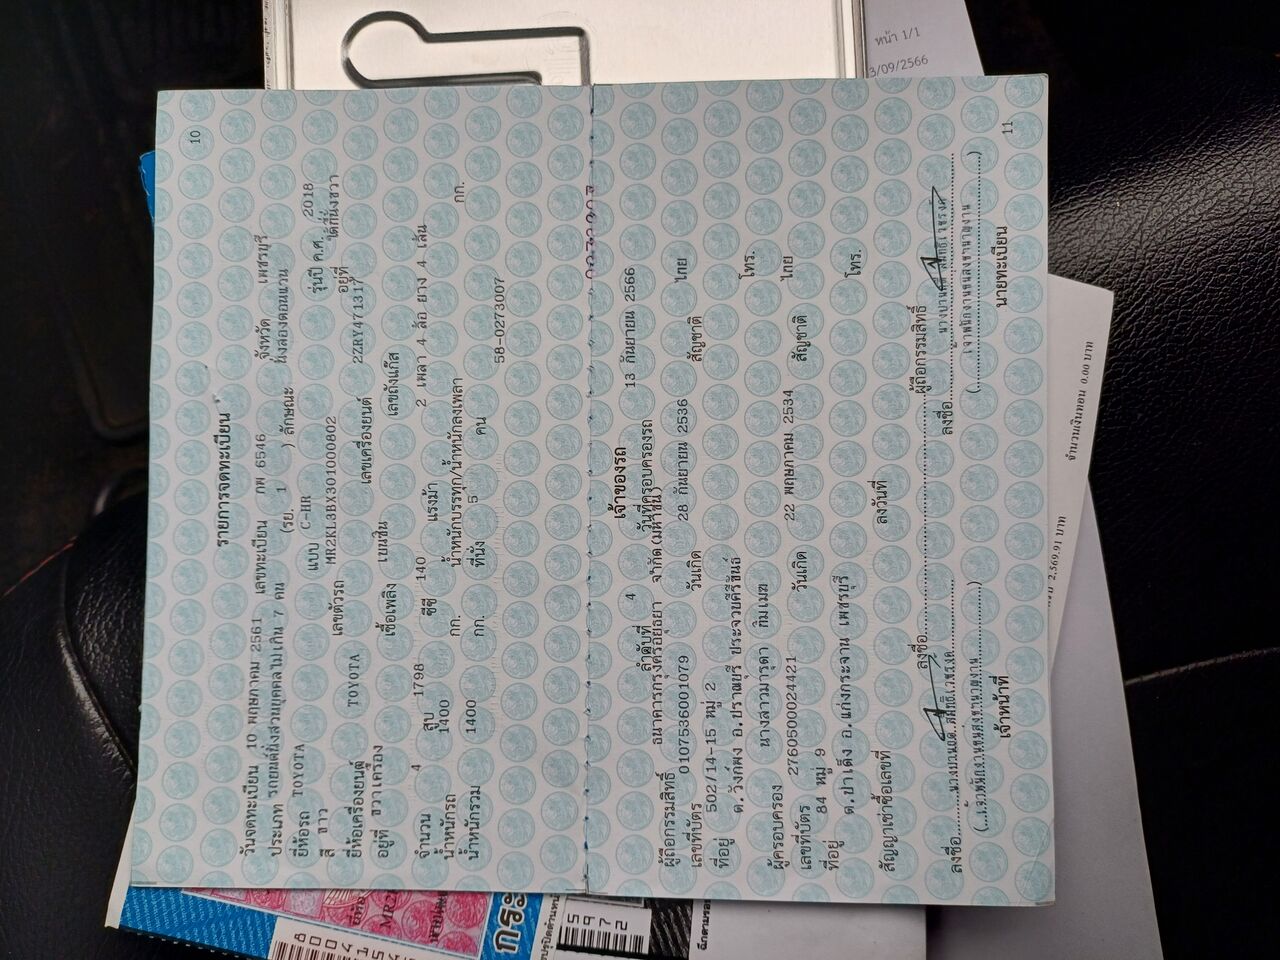 10
รายการจดทะเบียน
วันจดทะเบียน 10 พฤษภาคม 2561 เลขทะเบียน กพ 6546 จังหวัด เพชรบุรี
ประเภท รถยนต์นั่งส่วนบุคคลไม่เกิน 7 คน (รย. 1 ) ลักษณะ นั่งสองตอนแวน
ยี่ห้อรถ TOYOTA แบบ C-HR รุ่นปี ค.ศ. 2018
สี ขาว เลขตัวรถ MR2KL3BX301000802 อยู่ที่ ใต้ที่นั่งขวา
ยี่ห้อเครื่องยนต์ TOYOTA เลขเครื่องยนต์ 2ZRY471317
อยู่ที่ ขวาเครื่อง เชื้อเพลิง เบนซิน เลขถังแก๊ส
จำนวน 4 สูบ 1798 ซีซี 140 แรงม้า 2 เพลา 4 ล้อ ยาง 4 เส้น
น้ำหนักรถ 1400 กก. น้ำหนักบรรทุก/น้ำหนักลงเพลา กก.
น้ำหนักรวม 1400 กก. ที่นั่ง 5 คน
58-0273007
เจ้าของรถ
ลำดับที่ 4 วันที่ครอบครองรถ 13 กันยายน 2566
ผู้ถือกรรมสิทธิ์ ธนาคารกรุงศรีอยุธยา จำกัด(มหาชน)
เลขที่บัตร 0107536001079 วันเกิด 28 กันยายน 2536 สัญชาติ ไทย
ที่อยู่ 502/14-15 หมู่ 2
ต.วังก์พง อ.ปราณบุรี ประจวบคีรีขันธ์ โทร.
ผู้ครอบครอง นางสาวมารุดา กิมเมฆ
เลขที่บัตร 2760500024421 วันเกิด 22 พฤษภาคม 2534 สัญชาติ ไทย
ที่อยู่ 84 หมู่ 9
ต.ป่าเด็ง อ.แก่งกระจาน เพชรบุรี โทร.
สัญญาเช่าซื้อเลขที่ ลงวันที่
ลงชื่อ ผู้ถือกรรมสิทธิ์
ลงชื่อ
ลงชื่อ
(เจ้าพนักงานขนส่งชำนาญงาน)
(เจ้าพนักงานขนส่งชำนาญงาน)
เจ้าหน้าที่
นายทะเบียน
11
หน้า 1/1
3/09/2566
2,569.91 บาท
จำนวนเงินทอน 0.00 บาท